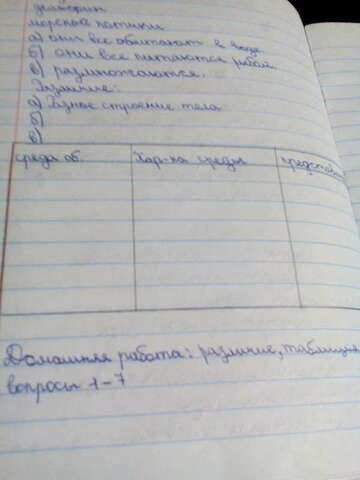 дельфин
морской котик
а) они все обитают в воде
б) они все питаются рыбой
в) размножаются.
Различие:
а) Разное строение тела
б)
в)
среда об. Хар-ка среды
Домашняя работа: различие, таблица,
вопросы 1-7